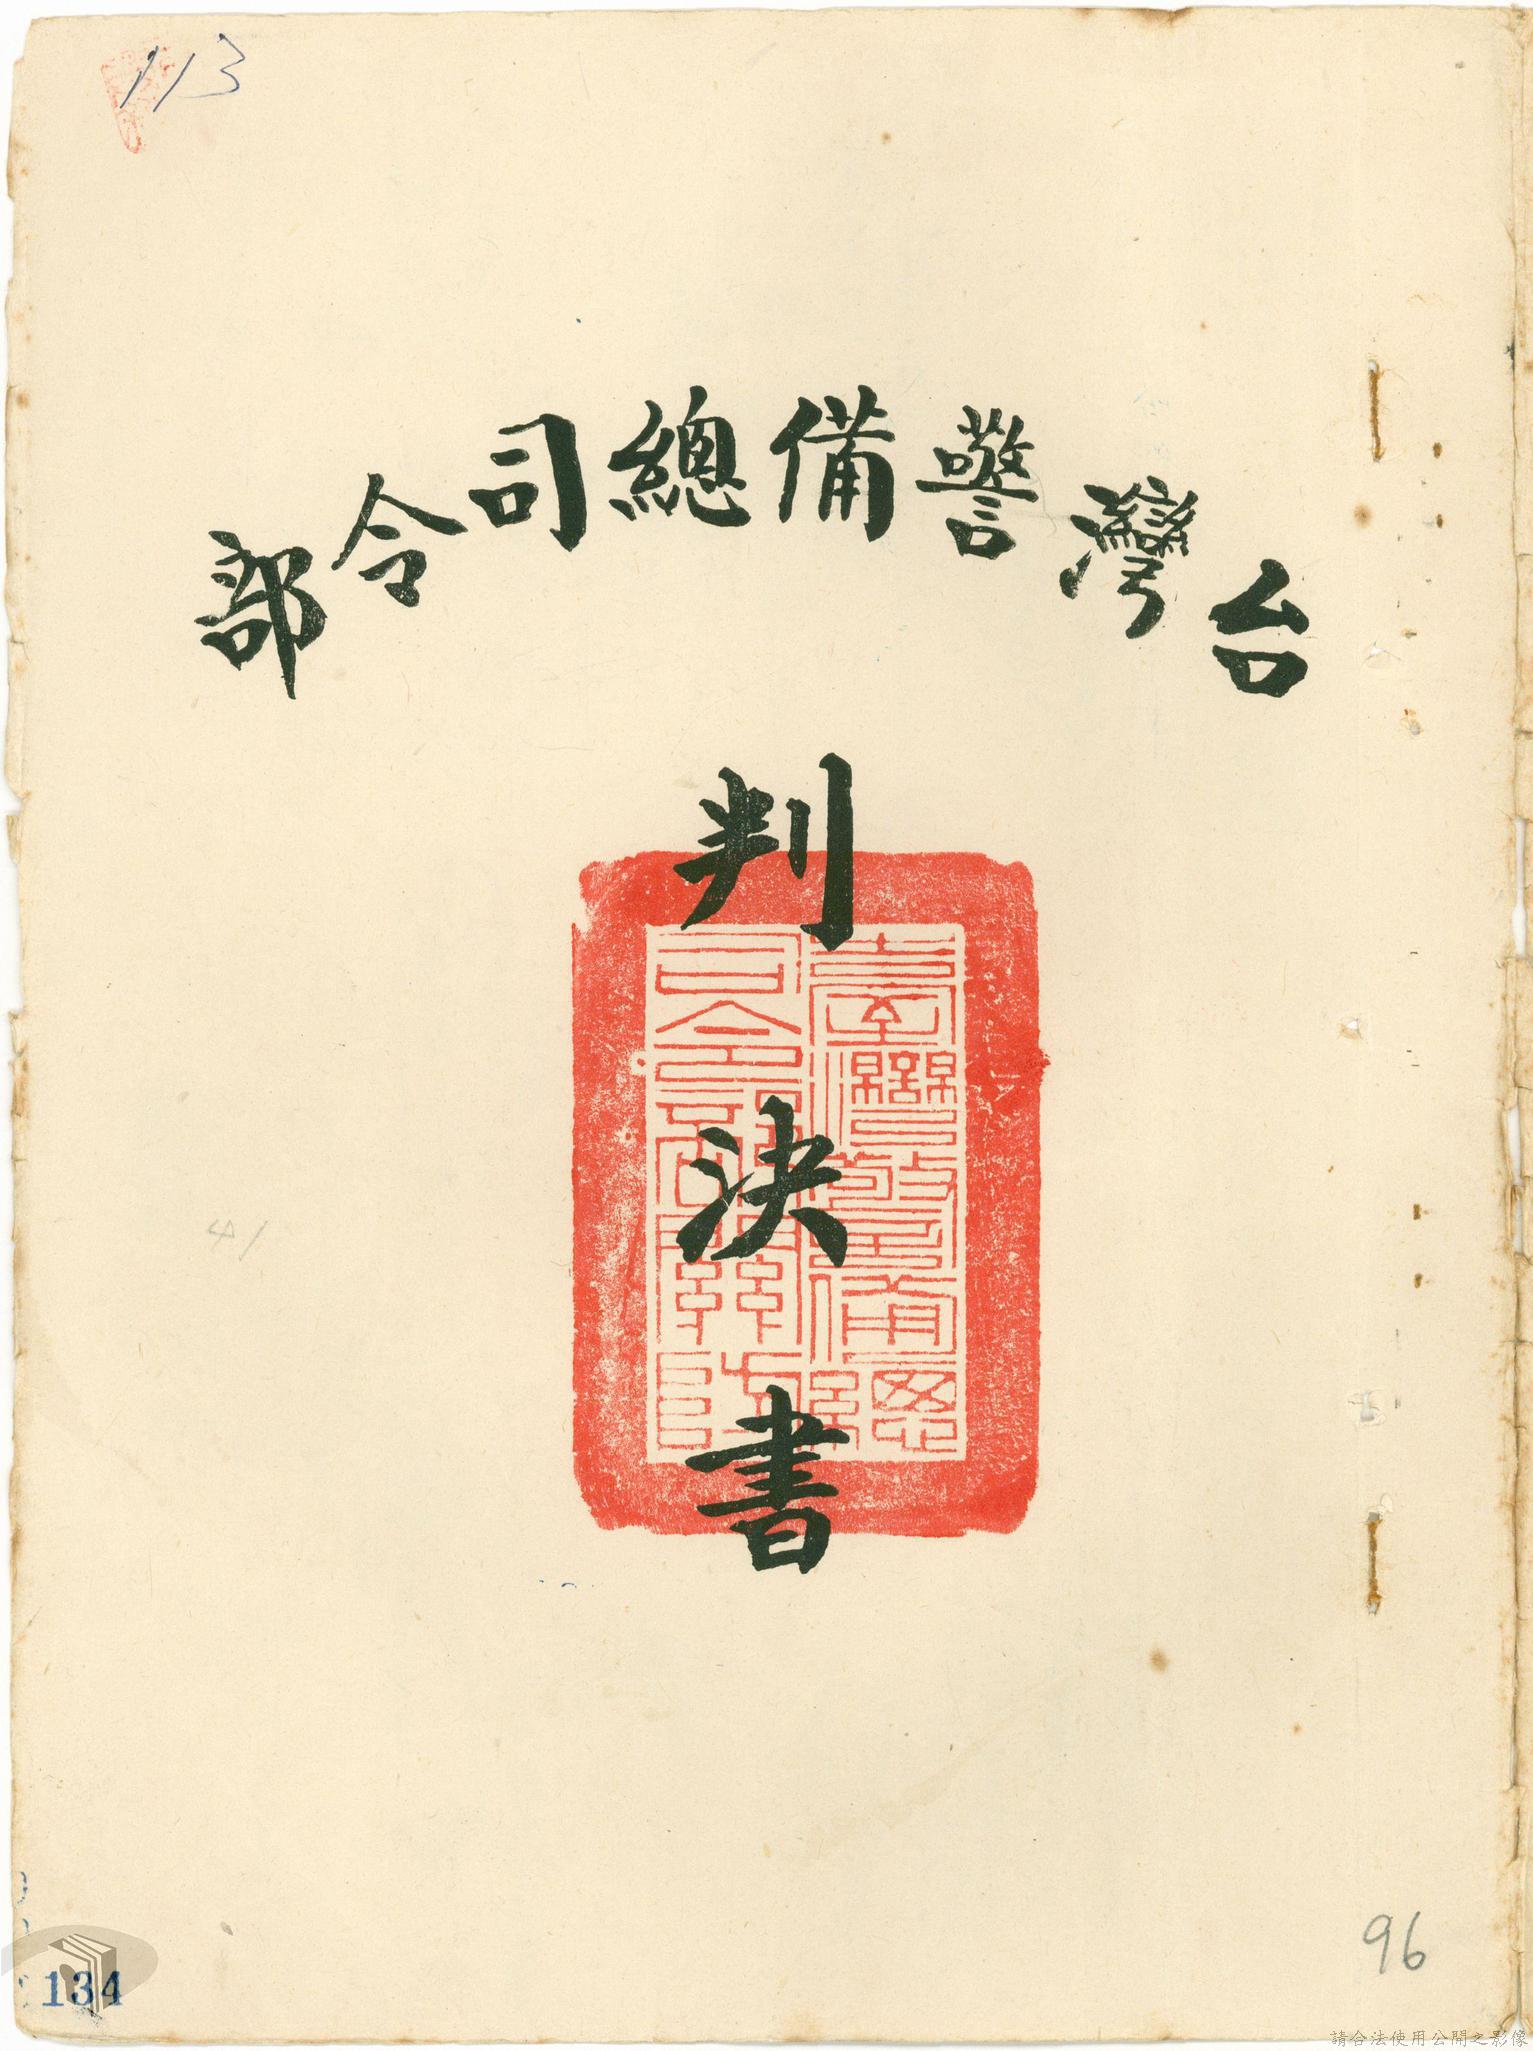 113
台灣警備總司令部
判決書
臺灣警備總
司令部軍
41
134
96
請合法使用公開之影像